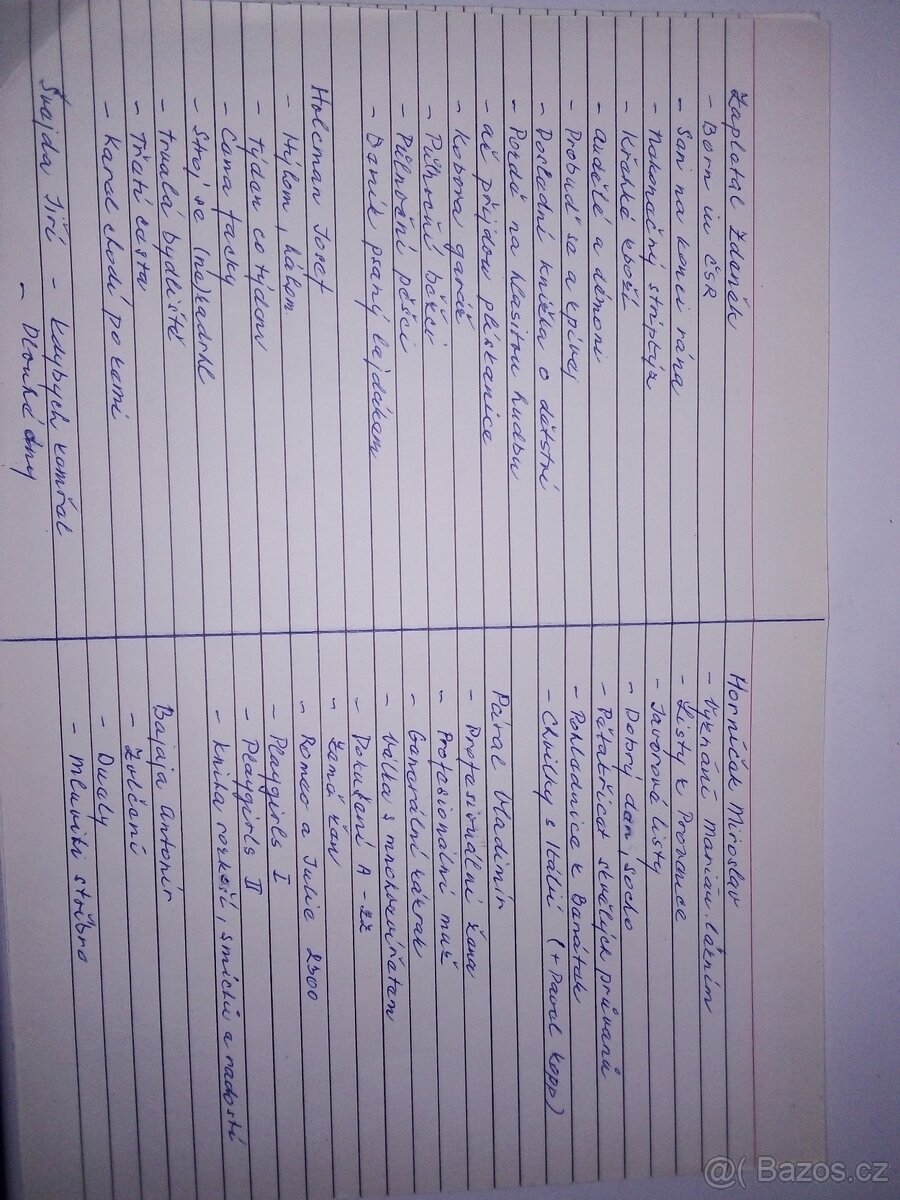 Zapletal Zdeněk
- Born in ČSR
- Sen na konci rána
- Nekonečný striptýz
- Křehké zboží
- Andělé a démoni
- Probuď se a zpívej
- Poslední knížka o dětství
- Pozdě na hlasitou hudbu
- až přijdou pláskanice
- Kobova garáž
- Půlnoční běžci
- Půlnoční pěšci
- Deník psaný lajdákem
Holcman Josef
- Hýlom, hálom
- Týden co týden
- Cena facky
- Stroj se (ne)zadrhl
- trvalá bydliště
- Třetí cesta
- Karel chodí po zemi
Švajda Jiří - kdybych zemřel
- Dlouhé dny
Horníček Miroslav
- Vyznání Marián. lázním
- Listy z Provence
- Javorové listy
- Dobrý den, socho
- Pětatřicet skvělých průvanů
- Pohlednice z Benátek
- Chvilky s Itálií (+ Pavel Kopp)
Páral Vladimír
- Profesionální žena
- Profesionální muž
- Generální zázrak
- Válka s mnohozvířetem
- Pokušení A-ZZ
- Země žen
- Romeo a Julie 2300
- Playgirls I
- Playgirls II
- kniha rozkoší, smíchu a radosti
Bajaja Antonín
- Zvlčení
- Duely
- Mluviti stříbro
@( Bazos.cz